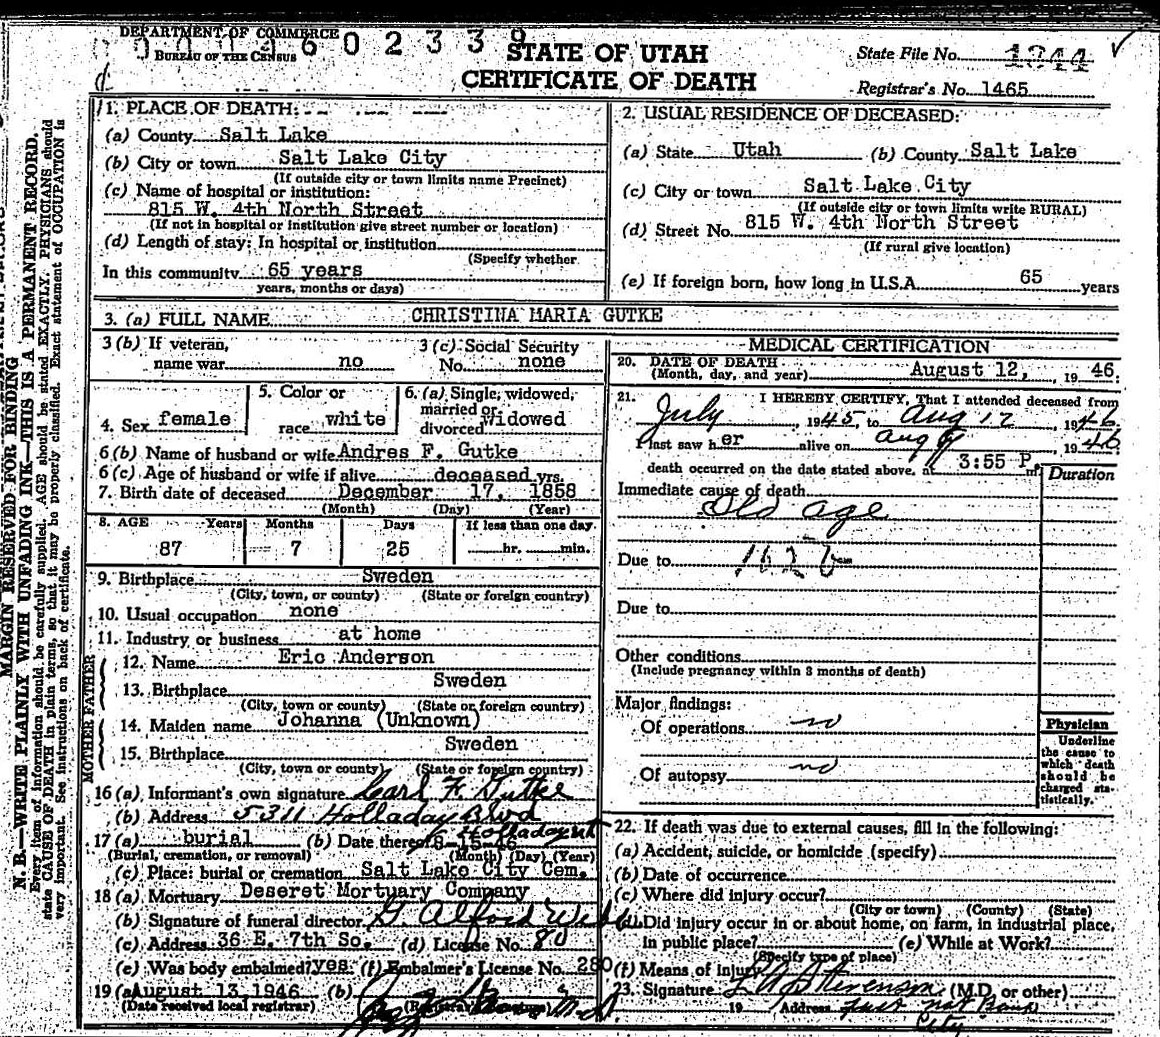 DEPARTMENT OF COMMERCE
BUREAU OF THE CENSUS
STATE OF UTAH
CERTIFICATE OF DEATH
State File No. 1844
Registrar's No. 1465
MARGIN RESERVED FOR BINDING
N. B.—WRITE PLAINLY WITH UNFADING INK—THIS IS A PERMANENT RECORD.
Every item of information should be carefully supplied. AGE should be stated EXACTLY. PHYSICIANS should
state CAUSE OF DEATH in plain terms, so that it may be properly classified. Exact statement of OCCUPATION is
very important. See instructions on back of certificate.
1. PLACE OF DEATH:
(a) County Salt Lake
(b) City or town Salt Lake City
(If outside city or town limits name Precinct)
(c) Name of hospital or institution:
815 W. 4th North Street
(If not in hospital or institution give street number or location)
(d) Length of stay: In hospital or institution
(Specify whether
In this community 65 years
years, months or days)
2. USUAL RESIDENCE OF DECEASED:
(a) State Utah (b) County Salt Lake
(c) City or town Salt Lake City
(If outside city or town limits write RURAL)
(d) Street No. 815 W. 4th North Street
(If rural give location)
(e) If foreign born, how long in U.S.A. 65 years
3. (a) FULL NAME CHRISTINA MARIA GUTKE
3 (b) If veteran, name war no
3 (c) Social Security No. none
4. Sex female
5. Color or race white
6. (a) Single, widowed, married or divorced Widowed
6 (b) Name of husband or wife Andres F. Gutke
6 (c) Age of husband or wife if alive deceased yrs.
7. Birth date of deceased December 17, 1858
(Month) (Day) (Year)
8. AGE Years Months Days If less than one day
87 7 25 hr. min.
9. Birthplace Sweden
(City, town, or county) (State or foreign country)
10. Usual occupation none
11. Industry or business at home
FATHER
12. Name Eric Anderson
13. Birthplace Sweden
(City, town or county) (State or foreign country)
MOTHER
14. Maiden name Johanna (Unknown)
15. Birthplace Sweden
(City, town or county) (State or foreign country)
16 (a) Informant's own signature Carl F. Gutke
(b) Address 5311 Holladay Blvd
Holladay Ut
17 (a) burial (b) Date thereof 8-15-46
(Burial, cremation, or removal) (Month) (Day) (Year)
(c) Place: burial or cremation Salt Lake City Cem.
18 (a) Mortuary Deseret Mortuary Company
(b) Signature of funeral director
(c) Address 36 E. 7th So. (d) License No. 80
(e) Was body embalmed? yes (f) Embalmer's License No. 280
19 (a) August 13 1946 (b)
(Date received local registrar)
MEDICAL CERTIFICATION
20. DATE OF DEATH
(Month, day, and year) August 12, 1946.
21. I HEREBY CERTIFY, That I attended deceased from
July 1945, to Aug 12, 1946
I last saw her alive on Aug 9, 1946
death occurred on the date stated above, at 3:55 P. m.
Duration
Immediate cause of death
Old age
Due to 162 b
Due to
Other conditions
(Include pregnancy within 3 months of death)
Major findings:
Of operations no
Of autopsy no
Physician
Underline
the cause to
which death
should be
charged sta-
tistically.
22. If death was due to external causes, fill in the following:
(a) Accident, suicide, or homicide (specify)
(b) Date of occurrence
(c) Where did injury occur?
(City or town) (County) (State)
(d) Did injury occur in or about home, on farm, in industrial place,
in public place? (e) While at Work?
(Specify type of place)
(f) Means of Injury
23. Signature L A Stevenson (M.D. or other)
19 Address First Nat Bank
City